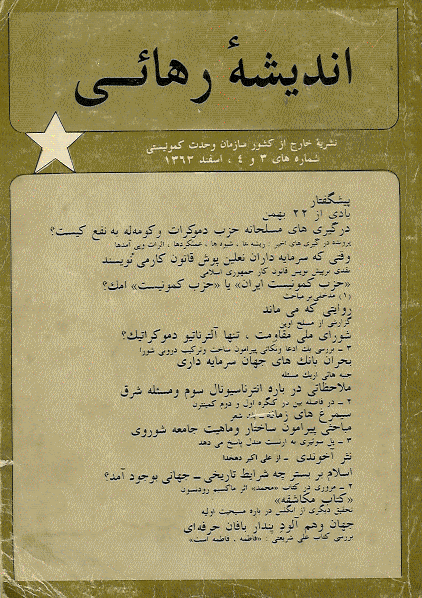 اندیشهٔ رهائی
نشریهٔ خارج از کشور سازمان وحدت کمونیستی
شماره های ۳ و ٤ ، اسفند ۱۳۶۳
پیشگفتار
یادی از ۲۲ بهمن
درگیری های مسلحانه حزب دموکرات وکومه‌له به نفع کیست؟
پرونده درگیری های اخیر : ریشه ها ، شیوه ها ، عملکردها ، اثرات وپی آمدها
وقتی که سرمایه داران نعلین پوش قانون کارمی نویسند
نقدی برپیش نویس قانون کار جمهوری اسلامی
«حزب کمونیست ایران» یا «حزب کمونیست» امک؟
(۱) مدخلی بر مباحث
روایتی که می ماند
گزارشی از مسلخ اوین
شورای ملی مقاومت ، تنها آلترناتیو دموکراتیک؟
۳ ـ بررسی یک ادعا ونکاتی پیرامون ساخت وترکیب درونی شورا
بحران بانک های جهان سرمایه داری
جنبه هائی ازیک مسئله
ملاحظاتی در باره انترناسیونال سوم ومسئله شرق
۲ ـ در فاصله بین دو کنگره اول و دوم کمینترن
سیمرغ های زمانه ـ یک شعر
مباحثی پیرامون ساختار وماهیت جامعه شوروی
۳ ـ پل سوئیزی به ارنست مندل پاسخ می دهد
نثر آخوندی ـ از علی اکبر دهخدا
اسلام بر بستر چه شرایط تاریخی ـ جهانی بوجود آمد؟
۲ ـ مروری در کتاب «محمد» اثر ماکسیم رودنسون
«کتاب مکاشفه»
تحقیق دیگری از انگلس در باره مسیحیت اولیه
جهان وهم آلود پندار بافان حرفه‌ای
بررسی کتاب علی شریعتی : «فاطمه ، فاطمه است»